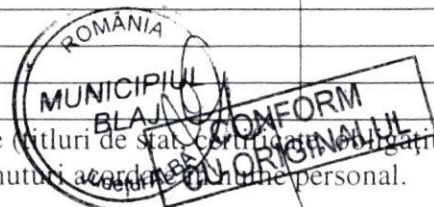 ROMÂNIA
MUNICIPIUL
BLAJ
Județul ALBA
CONFORM
CU ORIGINALUL
titluri de stat, certificate, obligațiuni
acordate în nume personal.